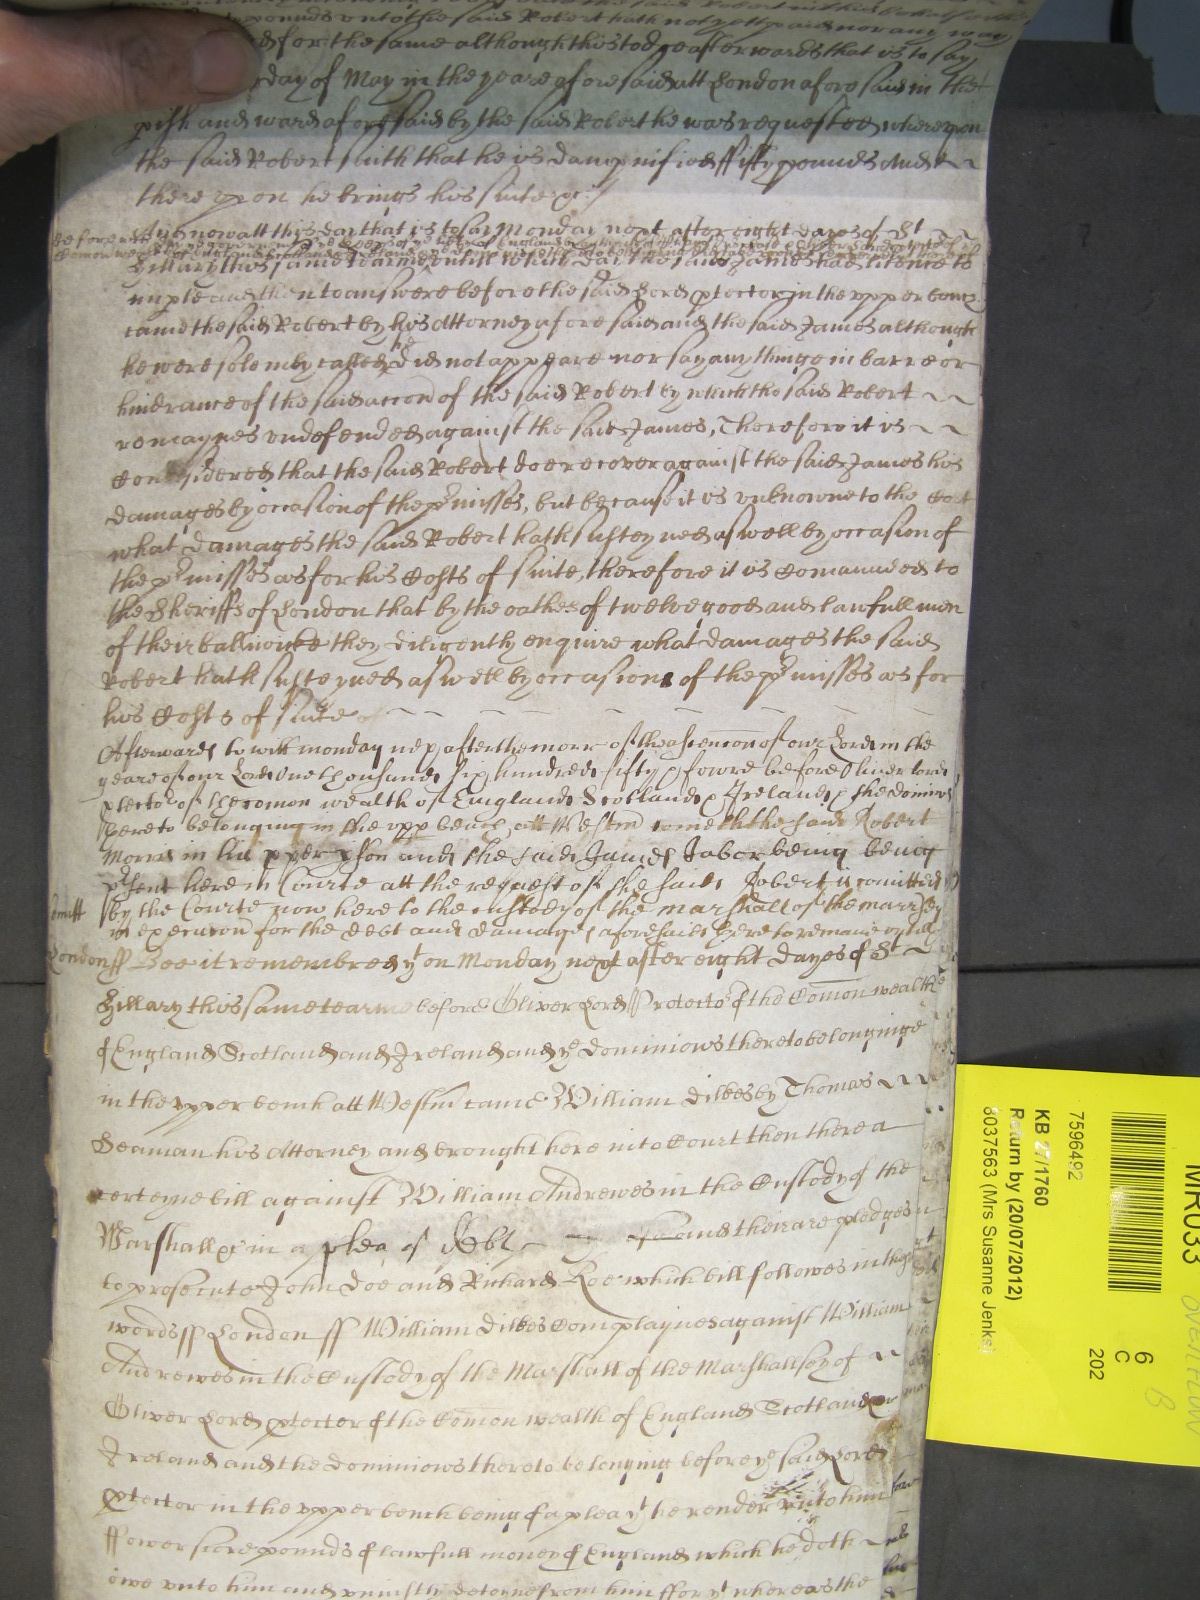 pounds unto the said Robert hath not yett paid nor any way
for the same although thisto afterwards that is to say
day of May in the yeare aforesaid att London aforesaid in the
pish and ward aforesaid by the said Robert he was requested whereupon
the said Robert saith that he is dampnified ffifty pounds And
there upon he brings his suite &c
And now att this day that is to say Monday next after eight dayes of St
Hillary this same tearme untill which day the said James had licence to
imple and then to answere before the said Lord ptector in the upper bench
came the said Robert by his Attorney aforesaid and the said James although
he were solemly called did not appeare nor say any thinge in barre or
hindrance of the said accon of the said Robert by which the said Robert
remaynes undefended against the said James, Therefore it is
Considered that the said Robert doe recover against the said James his
damages by occasion of the pmisses, but because it is unknowne to the Cort
what damages the said Robert hath susteyned aswell by occasion of
the pmisses as for his Costs of suite, therefore it is Comaunded to
the Sheriffs of London that by the oathes of twelve good and lawfull men
of their balliwicke they diligently enquire what damages the said
Robert hath susteyned aswell by occasion of the pmisses as for
his Costs of suite
Afterwards to witt monday nex after the morr of the ascencon of our Lord in the
yeare of our Lord One thousand six hundred fifty & fowre before Oliver lord
ptector of the comon wealth of England Scotland & Ireland & the dominions
thereto belonging in the upp bench att Westm cometh the said Robert
Morris in his pper pson and the said James Tabor being being
psent here in Courte att the request of the said Robert is comitted
by the Courte now here to the custody of the marshall of the marsey
in execucon for the debt and damages aforesaid there to remaine untill
London ss Bee it remembred yt on Monday next after eight dayes of St
Hillary this same tearme before Oliver Lord Protector of the Comon wealth
of England Scotland and Ireland and ye dominions thereto belonginge
in the upper bench att Westm came William Dilkes by Thomas
Seaman his Attorney and brought here into Court then there a
certeyne bill against William Andrewes in the Custody of the
Marshall &c in a plea of Debt and there are pledges
to prosecute John Doe and Richard Roe which bill followes in these
words ss London ss William Dilkes Complaynes against William
Andrewes in the Custody of the Marshall of the Marshallsey of
Oliver Lord ptector of the Comon wealth of England Scotland
Ireland and the dominions thereto belonging before ye said Lord
ptector in the upper bench being of a plea yt he render unto him
ffower score pounds of lawfull money of England which he doth
owe unto him and uniustly deteyne from him ffor yt whereas the
MR033
6
C
202
7596492
KB 27/1760
Return by (20/07/2012)
8037563 (Mrs Susanne Jenks)